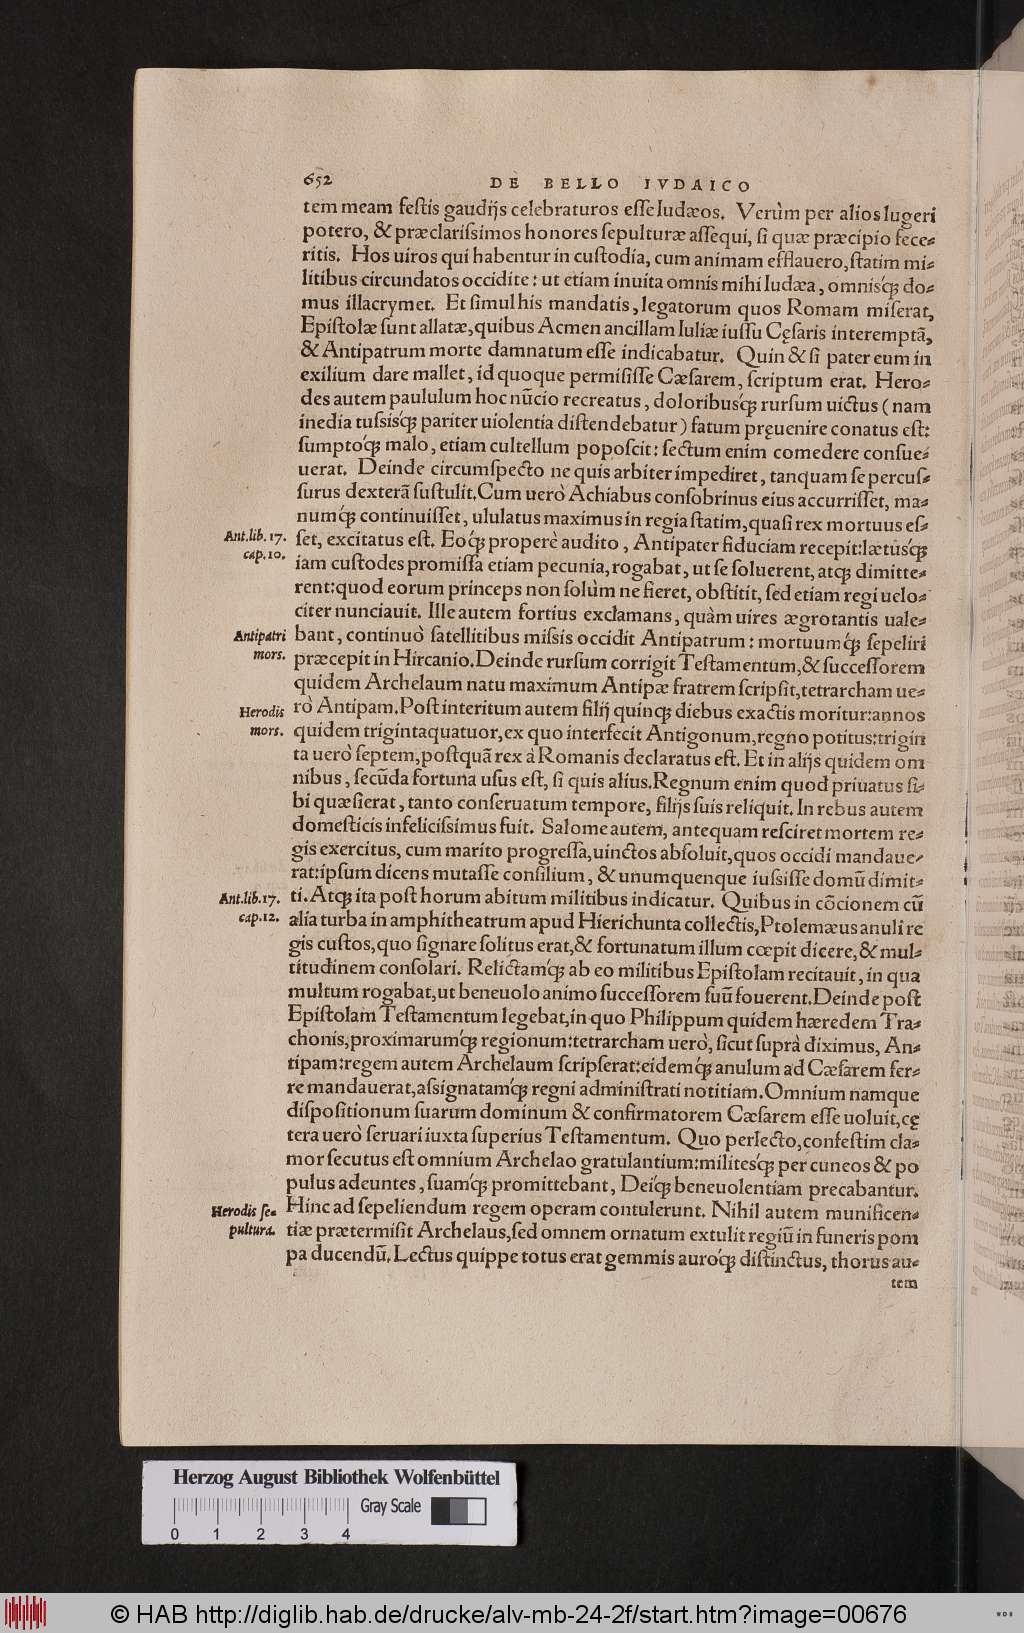 652 DE BELLO IVDAICO
tem meam festis gaudijs celebraturos esse Iudæos. Verùm per alios lugeri
potero, & præclarissimos honores sepulturæ assequi, si quæ præcipio fece-
ritis. Hos uiros qui habentur in custodia, cum animam efflauero, statim mi-
litibus circundatos occidite: ut etiam inuita omnis mihi Iudæa, omnisq́; do-
mus illacrymet. Et simul his mandatis, legatorum quos Romam miserat,
Epistolæ sunt allatæ, quibus Acmen ancillam Iuliæ iussu Cęsaris interemptã,
& Antipatrum morte damnatum esse indicabatur. Quin & si pater eum in
exilium dare mallet, id quoque permisisse Cæsarem, scriptum erat. Hero-
des autem paululum hoc nũcio recreatus, doloribusq́; rursum uictus (nam
inedia tussisq́; pariter uiolentia distendebatur) fatum pręuenire conatus est:
sumptoq́; malo, etiam cultellum poposcit: sectum enim comedere consue-
uerat. Deinde circumspecto ne quis arbiter impediret, tanquam se percus-
surus dexterã sustulit. Cum uerò Achiabus consobrinus eius accurrisset, ma-
numq́; continuisset, ululatus maximus in regia statim, quasi rex mortuus es-
Ant. lib. 17. set, excitatus est. Eoq́; properè audito, Antipater fiduciam recepit: lætusq́;
cap. 10. iam custodes promissa etiam pecunia, rogabat, ut se soluerent, atq; dimitte-
rent: quod eorum princeps non solùm ne fieret, obstitit, sed etiam regi uelo-
citer nunciauit. Ille autem fortius exclamans, quàm uires ægrotantis uale-
Antipatri bant, continuò satellitibus missis occidit Antipatrum: mortuumq́; sepeliri
mors. præcepit in Hircanio. Deinde rursum corrigit Testamentum, & successorem
quidem Archelaum natu maximum Antipæ fratrem scripsit, tetrarcham ue-
Herodis rò Antipam. Post interitum autem filij quinq; diebus exactis moritur: annos
mors. quidem trigintaquatuor, ex quo interfecit Antigonum, regno potitus: trigin
ta uerò septem, postquã rex à Romanis declaratus est. Et in alijs quidem om
nibus, secũda fortuna usus est, si quis alius. Regnum enim quod priuatus si-
bi quæsierat, tanto conseruatum tempore, filijs suis reliquit. In rebus autem
domesticis infelicissimus fuit. Salome autem, antequam resciret mortem re-
gis exercitus, cum marito progressa, uinctos absoluit, quos occidi mandaue-
rat: ipsum dicens mutasse consilium, & unumquenque iussisse domũ dimit-
Ant. lib. 17. ti. Atq; ita post horum abitum militibus indicatur. Quibus in cõcionem cũ
cap. 12. alia turba in amphitheatrum apud Hierichunta collectis, Ptolemæus anuli re
gis custos, quo signare solitus erat, & fortunatum illum cœpit dicere, & mul-
titudinem consolari. Relictamq́; ab eo militibus Epistolam recitauit, in qua
multum rogabat, ut beneuolo animo successorem suũ fouerent. Deinde post
Epistolam Testamentum legebat, in quo Philippum quidem hæredem Tra-
chonis, proximarumq́; regionum: tetrarcham uerò, sicut suprà diximus, An-
tipam: regem autem Archelaum scripserat: eidemq́; anulum ad Cæsarem fer-
re mandauerat, assignatamq́; regni administrati notitiam. Omnium namque
dispositionum suarum dominum & confirmatorem Cæsarem esse uoluit, cę
tera uerò seruari iuxta superius Testamentum. Quo perlecto, confestim cla-
mor secutus est omnium Archelao gratulantium: militesq́; per cuneos & po
pulus adeuntes, suamq́; promittebant, Deiq́; beneuolentiam precabantur.
Herodis se- Hinc ad sepeliendum regem operam contulerunt. Nihil autem munificen-
pultura. tiæ prætermisit Archelaus, sed omnem ornatum extulit regiũ in funeris pom
pa ducendũ. Lectus quippe totus erat gemmis auroq́; distinctus, thorus au-
tem
Herzog August Bibliothek Wolfenbüttel
Gray Scale
0 1 2 3 4
© HAB http://diglib.hab.de/drucke/alv-mb-24-2f/start.htm?image=00676